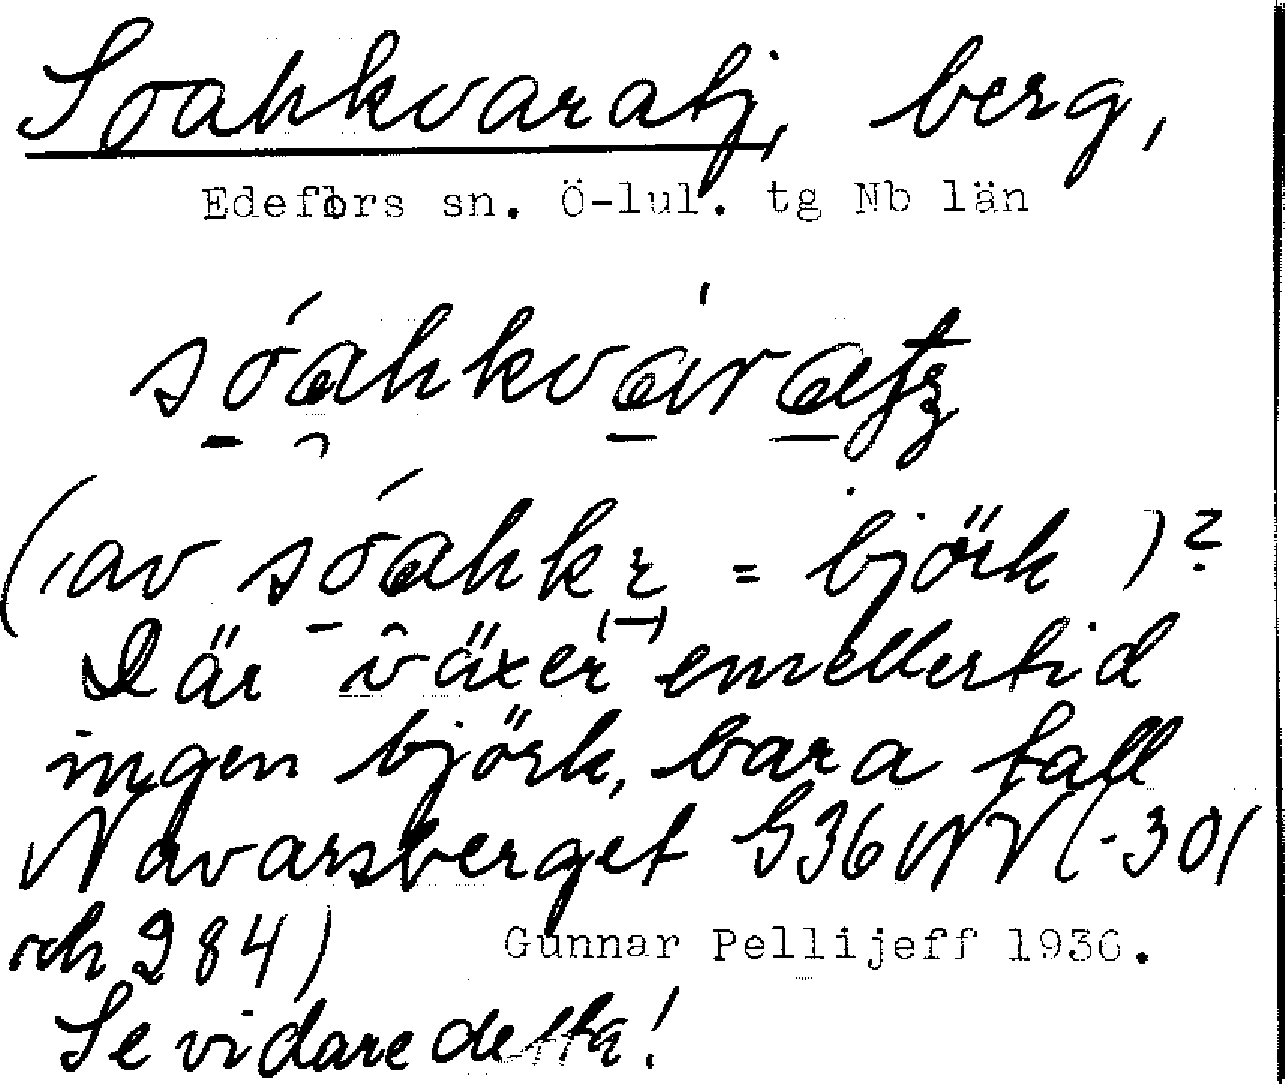 Soahkvaratj, berg,
Edefors sn. Ö-lul. tg Nb län
sóahkvàratj
(av sóahkɪ = björk)?
Där växer emellertid
ingen björk, bara tall
Navarsberget G36 NV (-301
och 284)
Gunnar Pellijeff 1936.
Se vidare detta!